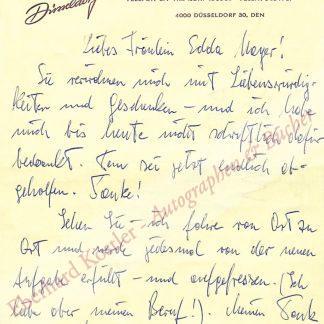 Düsseldorf
4000 DÜSSELDORF 30, DEN
Liebes Fräulein Edda Mayer!
Sie verwöhnen mich mit Liebenswürdig-
keiten und Geschenken – und ich habe
mich bis heute nicht schriftlich dafür
bedankt. Dem sei jetzt endlich ab-
geholfen. Danke!
Sehen Sie – ich fahre von Ort zu
Ort und werde jedesmal von der neuen
Aufgabe erfüllt – und aufgefressen. (Ich
liebe aber meinen Beruf!). Meinen Dank
Eberhard Köstler Autographen & Bücher